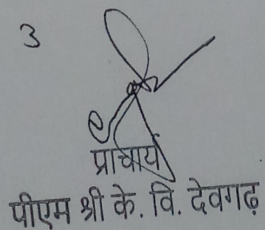 3
प्राचार्य
पीएम श्री के. वि. देवगढ़